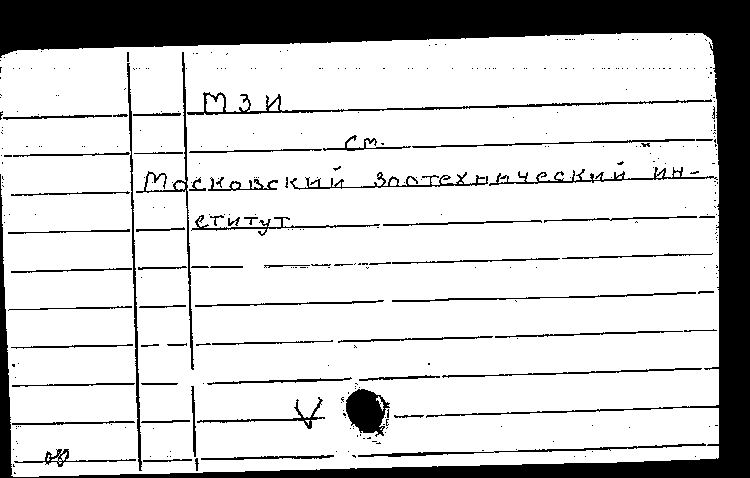 МЗИ
см.
Московский зоотехнический ин-
ститут
V